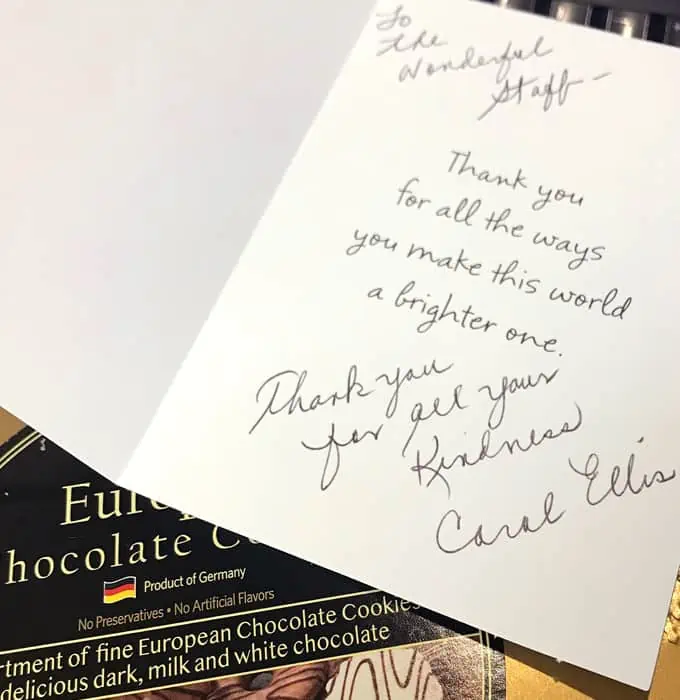 To
the
Wonderful
Staff -
Thank you
for all the ways
you make this world
a brighter one.
Thank you
for all your
Kindness
Carol Ellis
Eur
hocolate C
Product of Germany
No Preservatives • No Artificial Flavors
rtment of fine European Chocolate Cookies
delicious dark, milk and white chocolate